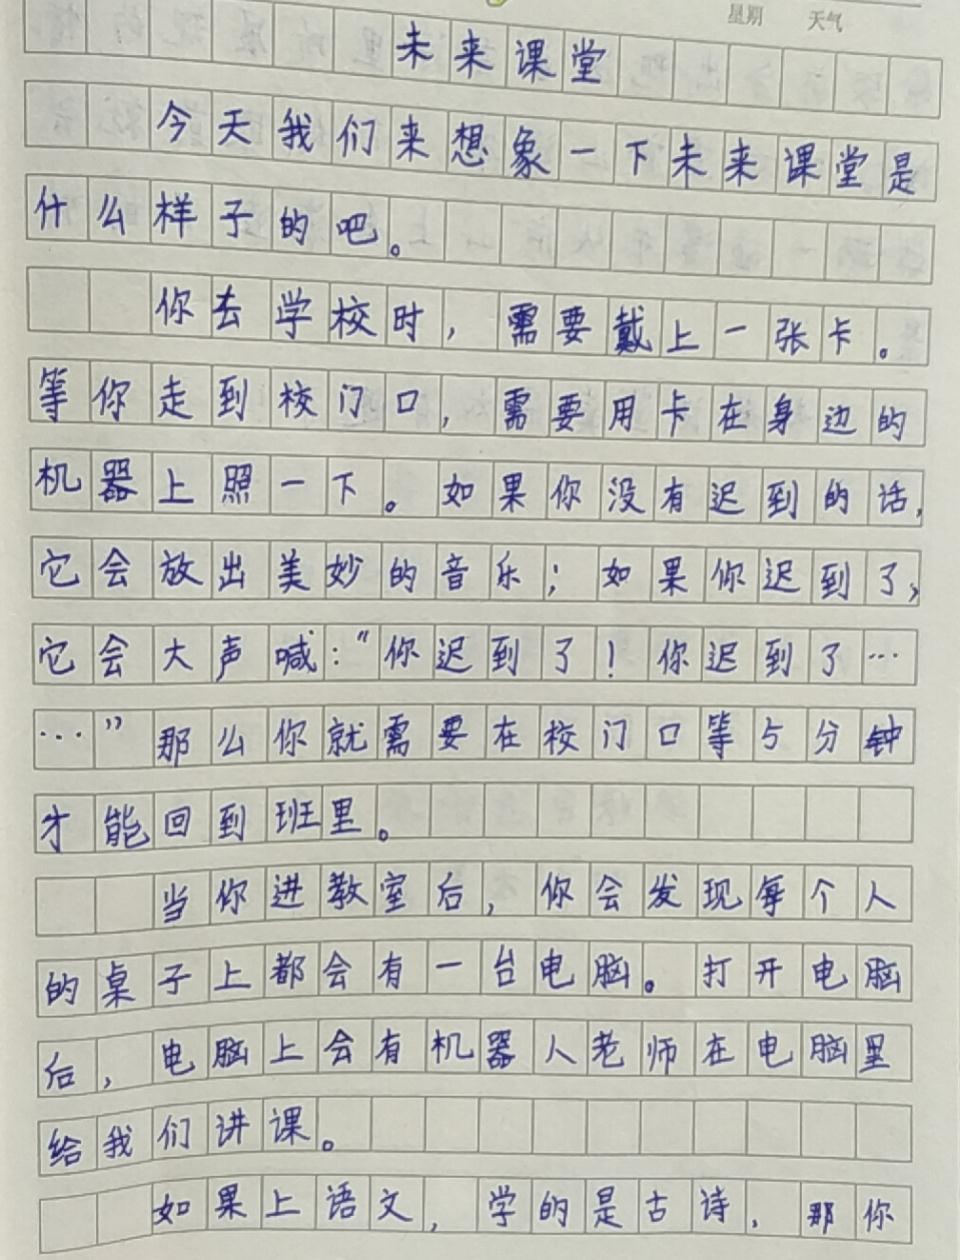 星期 天气
未来课堂
今天我们来想象一下未来课堂是
什么样子的吧。
你去学校时，需要戴上一张卡。
等你走到校门口，需要用卡在身边的
机器上照一下。如果你没有迟到的话，
它会放出美妙的音乐；如果你迟到了，
它会大声喊："你迟到了！你迟到了…
…"那么你就需要在校门口等5分钟
才能回到班里。
当你进教室后，你会发现每个人
的桌子上都会有一台电脑。打开电脑
后，电脑上会有机器人老师在电脑里
给我们讲课。
如果上语文，学的是古诗，那你